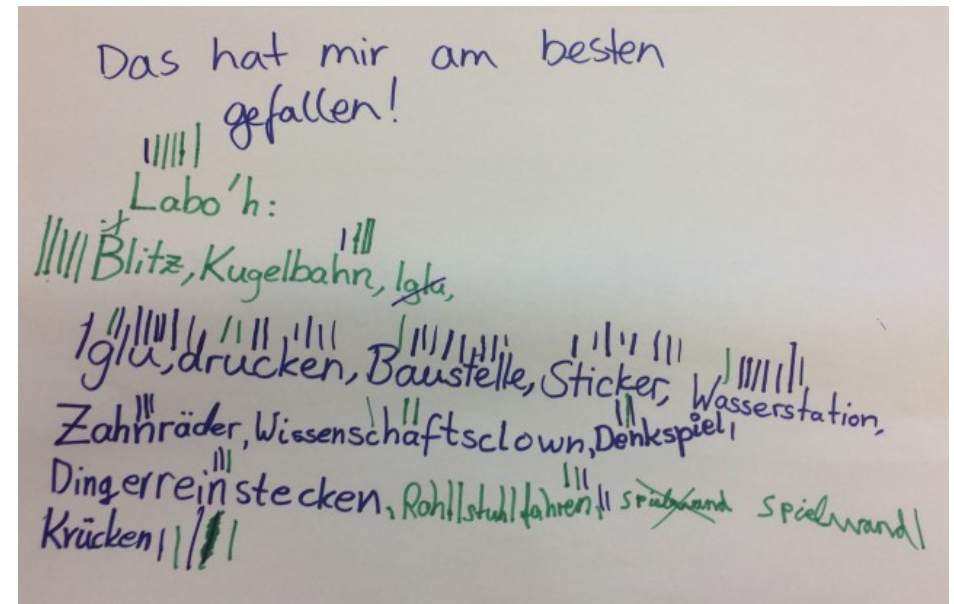 Das hat mir am besten
gefallen!
Labo'h:
Blitz, Kugelbahn, Iglu,
Iglu, drücken, Baustelle, Sticker, Wasserstation,
Zahnräder, Wissenschaftsclown, Denkspiel,
Dingerreinstecken, Rohllstuhlfahren, Spielwand Spielwand
Krücken